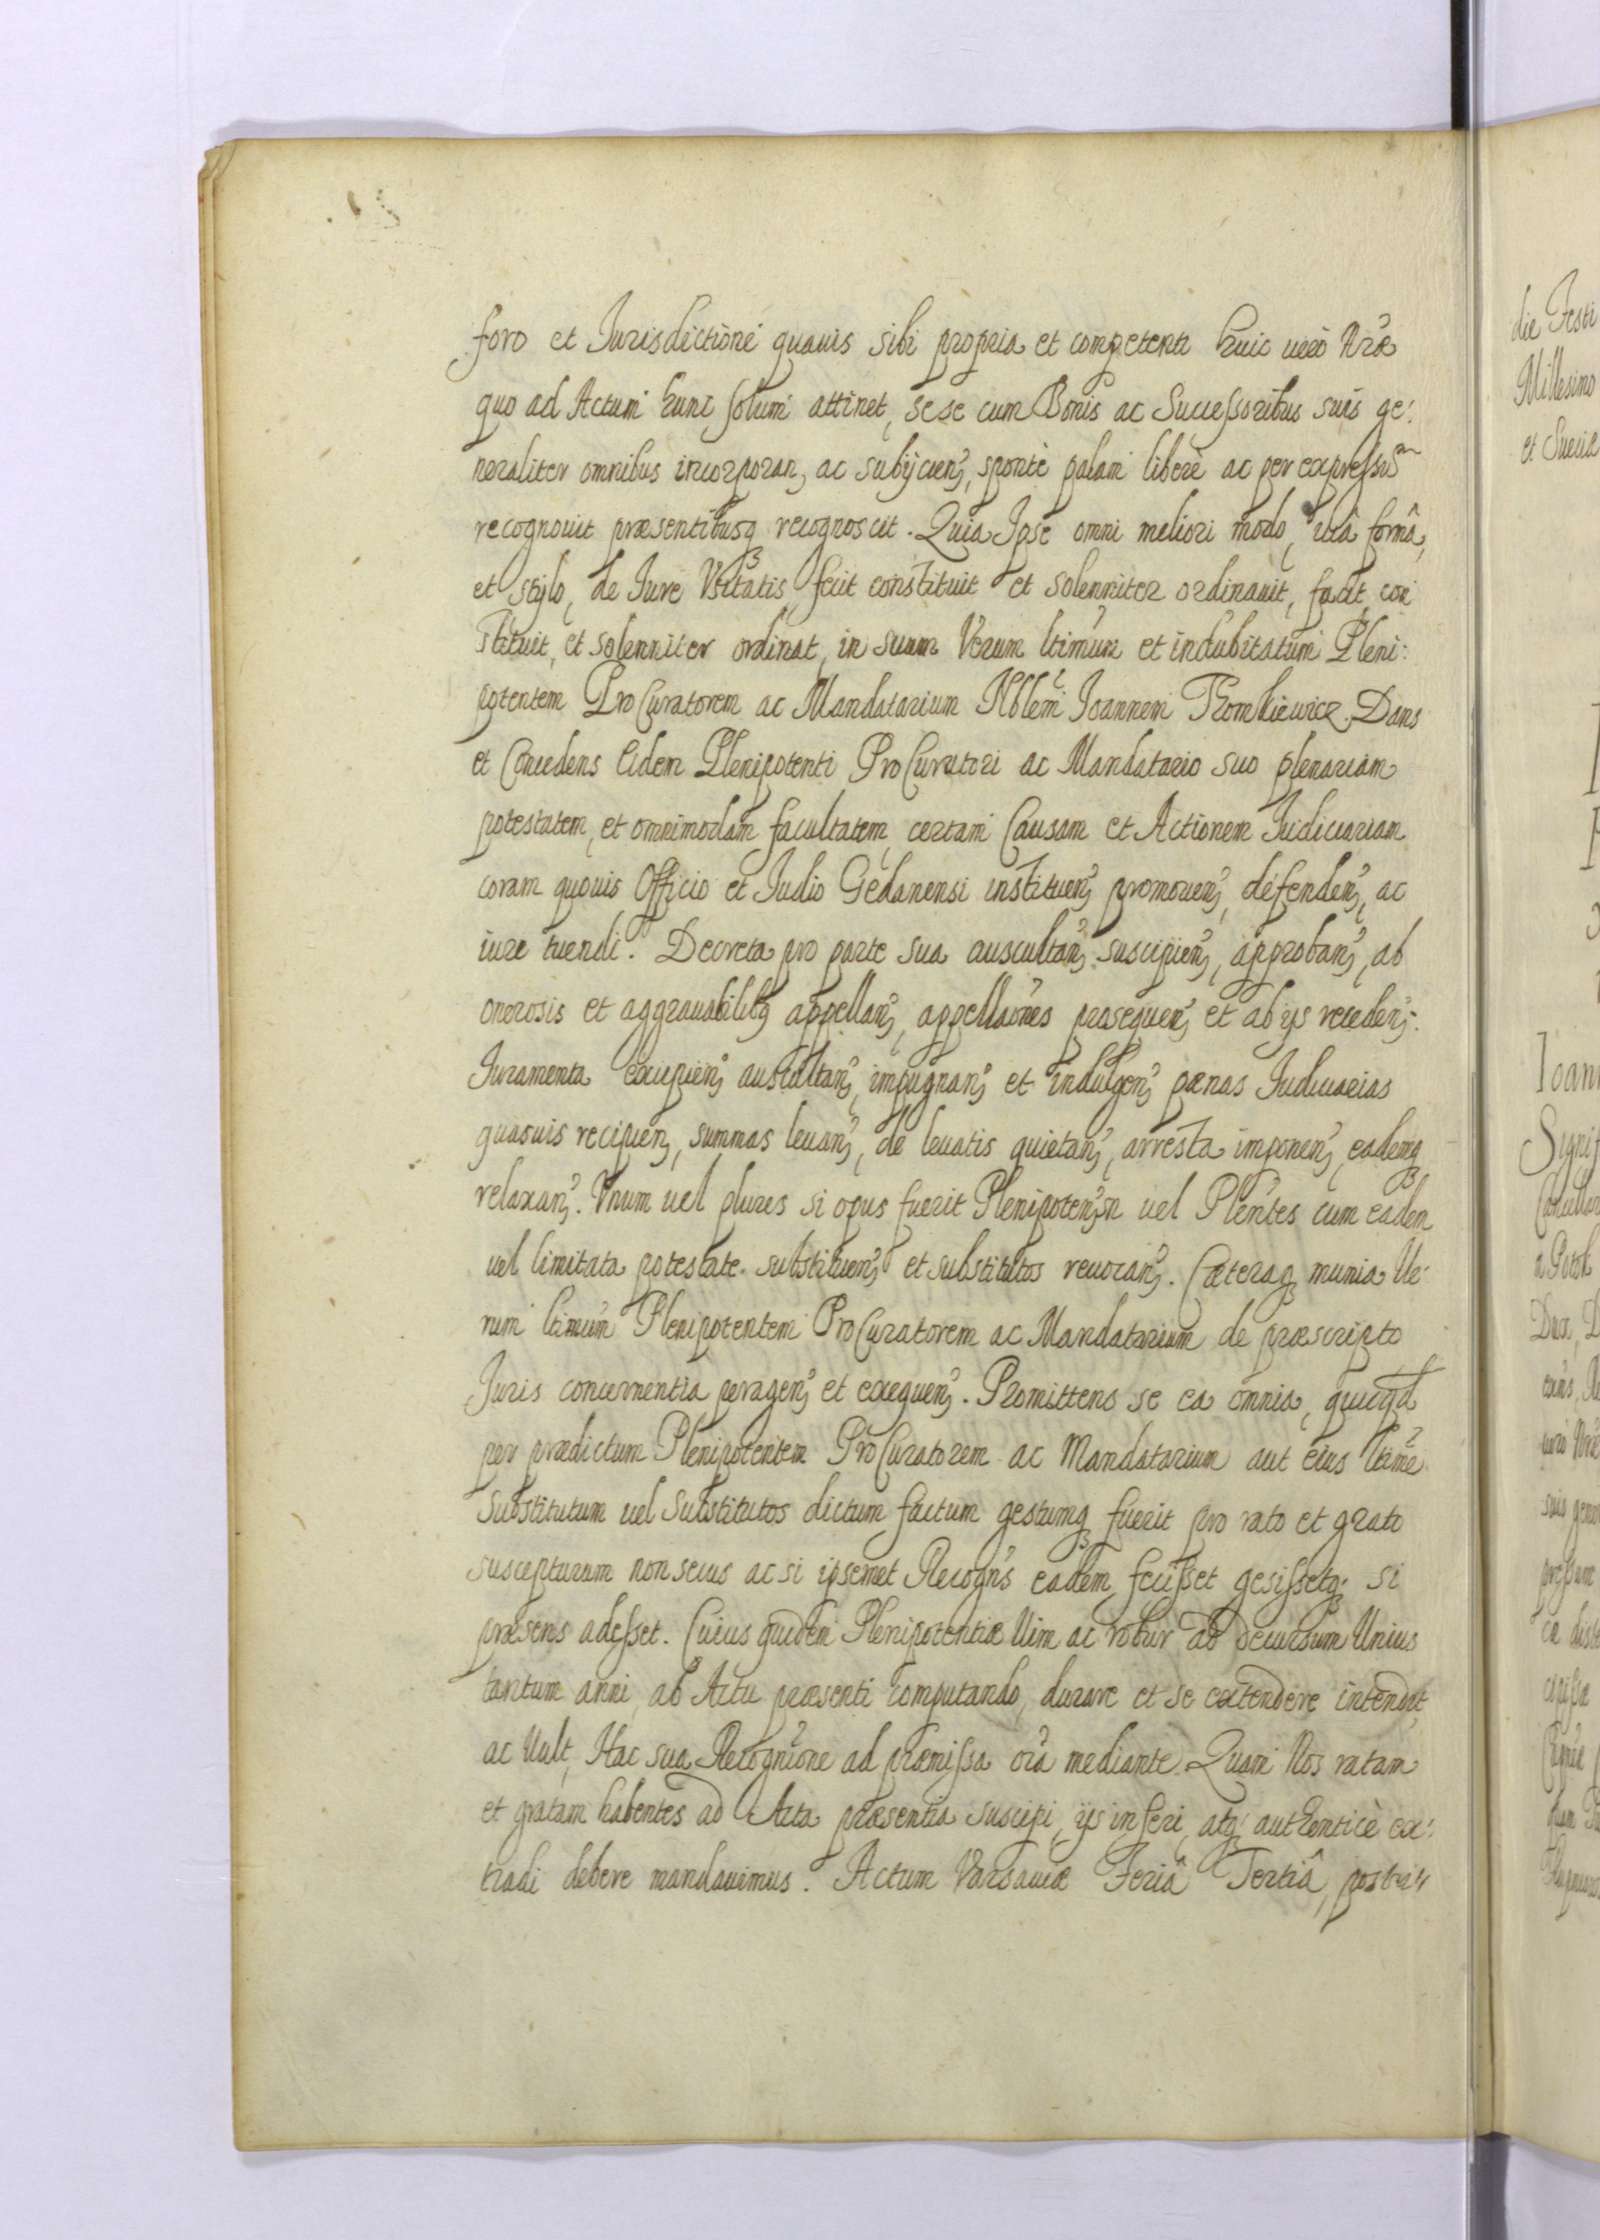 foro et Jurisdictione quauis sibi propria et competenti huic verò Nrae
quo ad Actum hunc solum attinet, sese cum Bonis ac Successoribus suis ge:
neraliter omnibus incorporan, ac subijcien, spontè palam liberè ac per expressu
recognouit praesentibusq recognoscit. Quia Ipse omni meliori modo, viâ formâ,
et stylo, de Jure Vsitatis, fecit constituit et solenniter ordinauit, facit con
stituit, et solenniter ordinat, in suum Verum ltimum et indubitatum Pleni:
potentem ProCuratorem ac Mandatarium Nblem Joannem Tromkiewicz. Dans
et Concedens Eidem Plenipotenti ProCuratori ac Mandatario suo plenariam
potestatem, et omnimodam facultatem, certam Causam et Actionem Judiciariam
coram quouis Officio et Judio Gedanensi instituen, promouen, defenden, ac
iure tuendi. Decreta pro parte sua auscultan, suscipien, approban, ab
onerosis et aggrauabilibq appellan, appellaones prosequen, et ab ijs receden:
Juramenta excipien, auscultan, impugnan, et indulgen, paenas Judiciarias
quasuis recipien, summas leuan, de leuatis quietan, arresta imponen, eademq
relaxan. Vnum vel plures si opus fuerit Plenipoten vel Plentes cum eadem
vel limitata potestate substituen, et substitutos reuocan. Caeteraq munia Ve:
rum ltimum Plenipotentem ProCuratorem ac Mandatarium de praescripto
Juris concernentia peragen, et exequen. Promittens se ea omnia, quicqd
per praedictum Plenipotentem ProCuratorem ac Mandatarium aut eius ltime
Substitutum vel Substitutos dictum factum gestumq fuerit pro rato et grato
suscepturum non secus ac si ipsemet Recogns eadem fecisset gesissetq; si
praesens adesset. Cuius quidem Plenipotentiae Vim ac robur ad decursum Unius
tantum anni, ab Actu praesenti computando, durare et se extendere intendit,
ac Vult, Hac sua Recognione ad praemissa oia mediante. Quam Nos ratam
et gratam habentes ad Acta praesentia suscipi, ijs inseri, atq authenticè ex:
tradi debere mandauimus. Actum Varsauiae Feriâ Tertiâ, postri
die Festi
Millesimo
et Sueciae